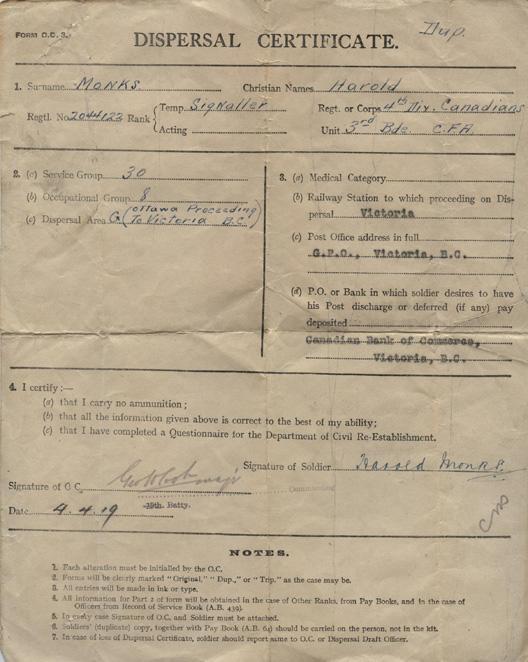 FORM O.C. 3.
Dup.
DISPERSAL CERTIFICATE.
1. Surname MONKS. Christian Names Harold
Regtl. No. 2044123 Rank { Temp. Signaller Regt. or Corps 4th Div. Canadians
Acting Unit 3rd Bde C.F.A.
2. (a) Service Group 30
(b) Occupational Group 8
(c) Dispersal Area G (Ottawa Proceeding
To Victoria B.C.)
3. (a) Medical Category
(b) Railway Station to which proceeding on Dis-
persal Victoria
(c) Post Office address in full
G.P.O., Victoria, B.C.
(d) P.O. or Bank in which soldier desires to have
his Post discharge or deferred (if any) pay
deposited
Canadian Bank of Commerce,
Victoria, B.C.
4. I certify :—
(a) that I carry no ammunition ;
(b) that all the information given above is correct to the best of my ability;
(c) that I have completed a Questionnaire for the Department of Civil Re-Establishment.
Signature of Soldier Harold Monks.
Signature of O C. major
Commanding
Date 4.4.19 Batty.
NOTES.
1. Each alteration must be initialled by the O.C.
2. Forms will be clearly marked "Original," "Dup.," or "Trip." as the case may be.
3. All entries will be made in ink or type.
4. All information for Part 2 of form will be obtained in the case of Other Ranks, from Pay Books, and in the case of
Officers from Record of Service Book (A.B. 439).
5. In every case Signature of O.C. and Soldier must be attached.
6. Soldiers' (duplicate) copy, together with Pay Book (A.B. 64) should be carried on the person, not in the kit.
7. In case of loss of Dispersal Certificate, soldier should report same to O.C. or Dispersal Draft Officer.